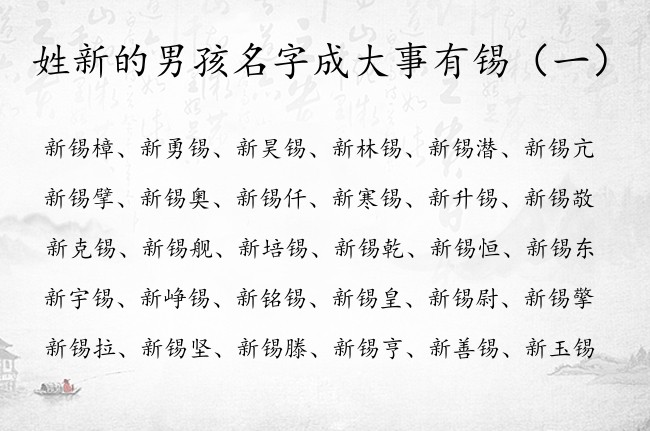 姓新的男孩名字成大事有锡（一）
新锡樟、新勇锡、新昊锡、新林锡、新锡潜、新锡亢
新锡擘、新锡奥、新锡仟、新寒锡、新升锡、新锡敬
新克锡、新锡舰、新培锡、新锡乾、新锡恒、新锡东
新宇锡、新峥锡、新铭锡、新锡皇、新锡尉、新锡擎
新锡拉、新锡坚、新锡滕、新锡亨、新善锡、新玉锡